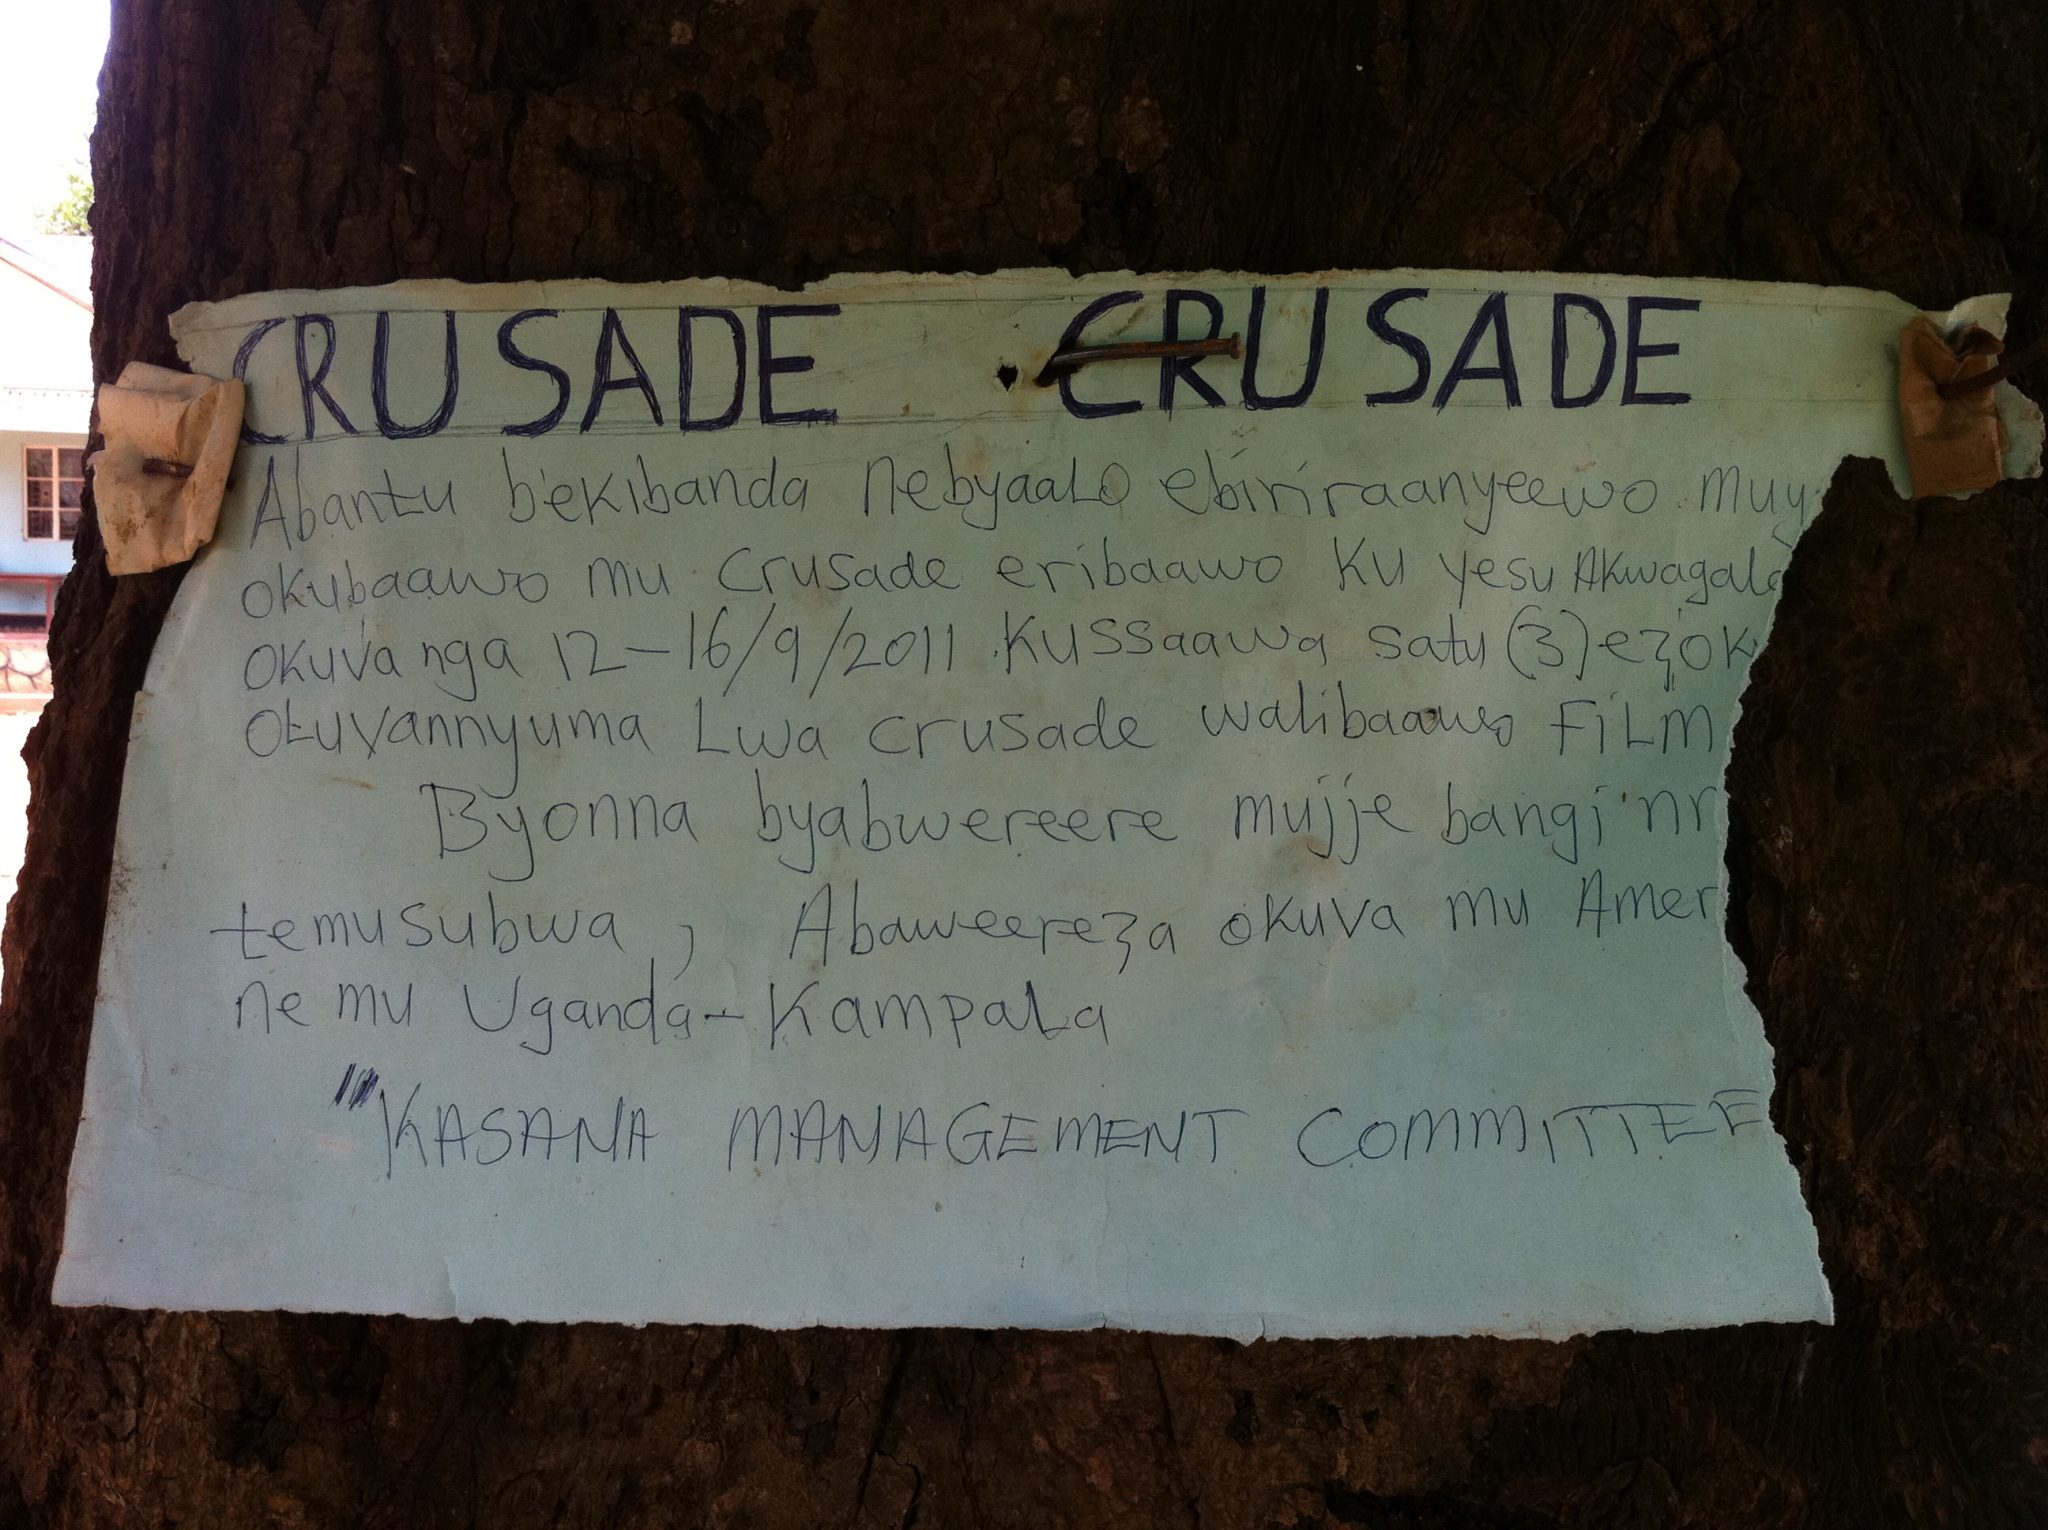 CRUSADE CRUSADE
Abantu b'ekibanda nebyaalo ebiriraanyeewo muy
okubaawo mu crusade eribaawo ku yesu Akwagala
okuva nga 12-16/9/2011 kussaawa satu (3) ezok
oluvannyuma Lwa crusade walibaawo FiLM
Byonna byabwereere mujje bangi nr
temusubwa, Abaweereza okuva mu Amer
ne mu Uganda-Kampala
"KASANA MANAGEMENT COMMITTEE